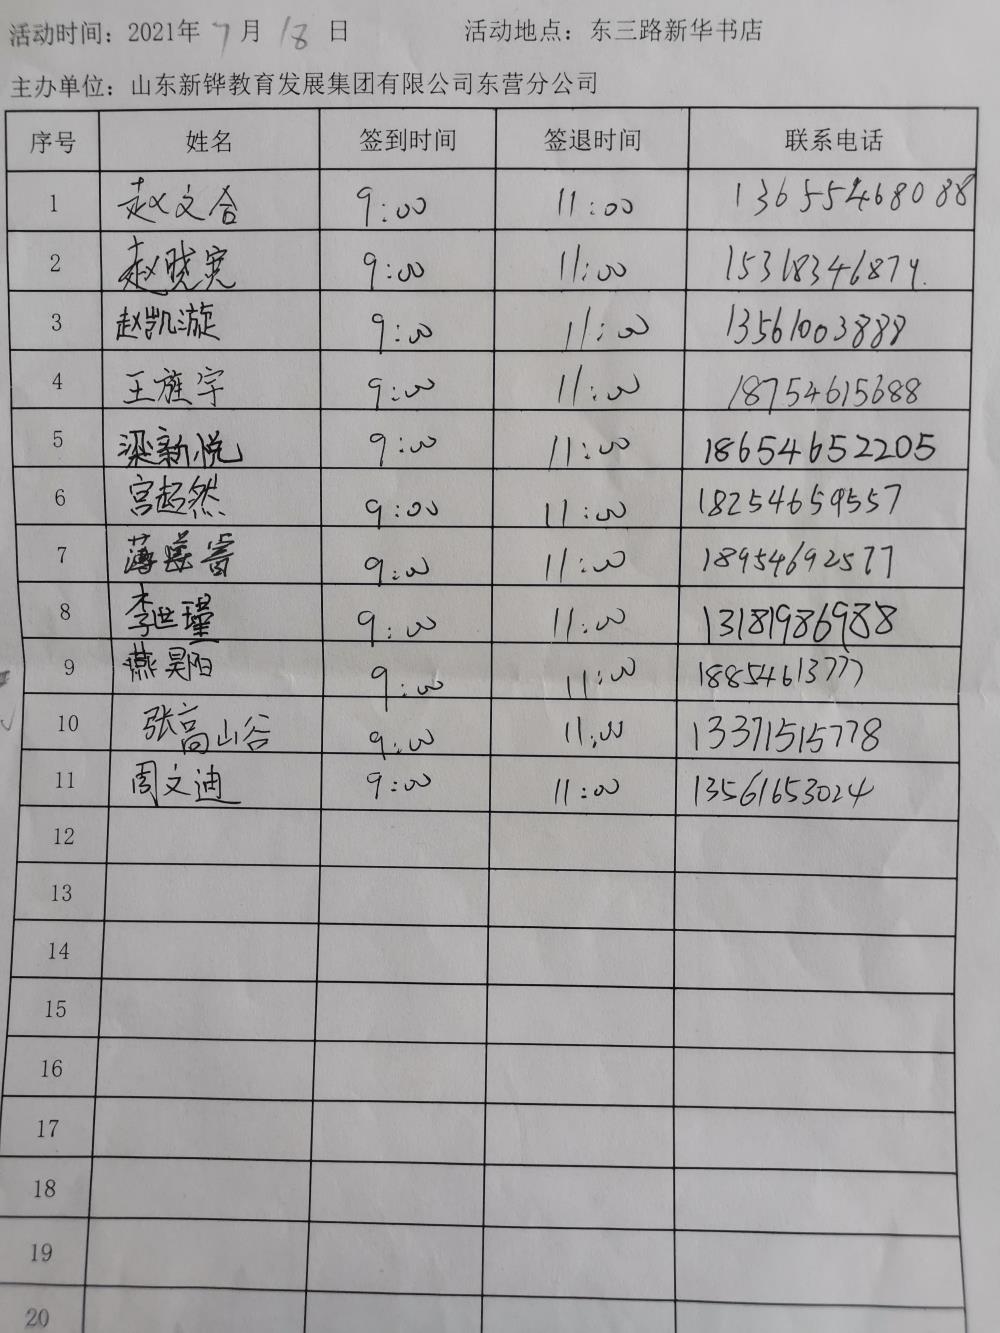 活动时间：2021年 7 月 18 日 活动地点：东三路新华书店
主办单位：山东新铧教育发展集团有限公司东营分公司
序号 姓名 签到时间 签退时间 联系电话
1 赵文合 9:00 11:00 13655468088
2 赵晓宽 9:00 11:00 15318346879.
3 赵凯漩 9:00 11:00 13561003888
4 王旌宇 9:00 11:00 18754615688
5 梁新悦 9:00 11:00 18654652205
6 宫起然 9:00 11:00 18254659557
7 9:00 11:00 18954692577
8 李世瑾 9:00 11:00 13181986988
9 燕昊阳 9:00 11:00 18854613777
10 张高山谷 9:00 11:00 13371515778
11 周文迪 9:00 11:00 13561653024
12
13
14
15
16
17
18
19
20